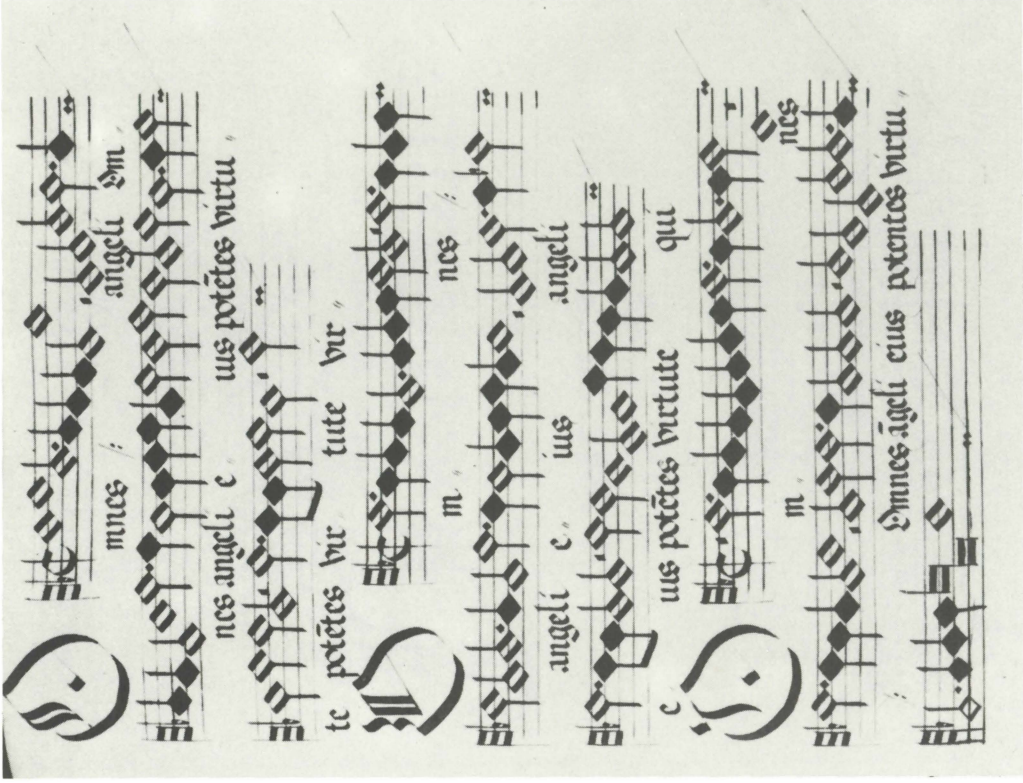 Omnes angeli Om
nes angeli e ius potētes virtu
te potētes vir tute vir
Om nes
angeli e ius angeli
e ius potētes virtute qui
Om nes
Omnes āgeli eius potentes virtu